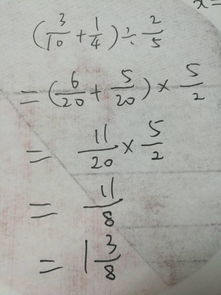 x=
(3/10 + 1/4) ÷ 2/5
= (6/20 + 5/20) × 5/2
= 11/20 × 5/2
= 11/8
= 1 3/8